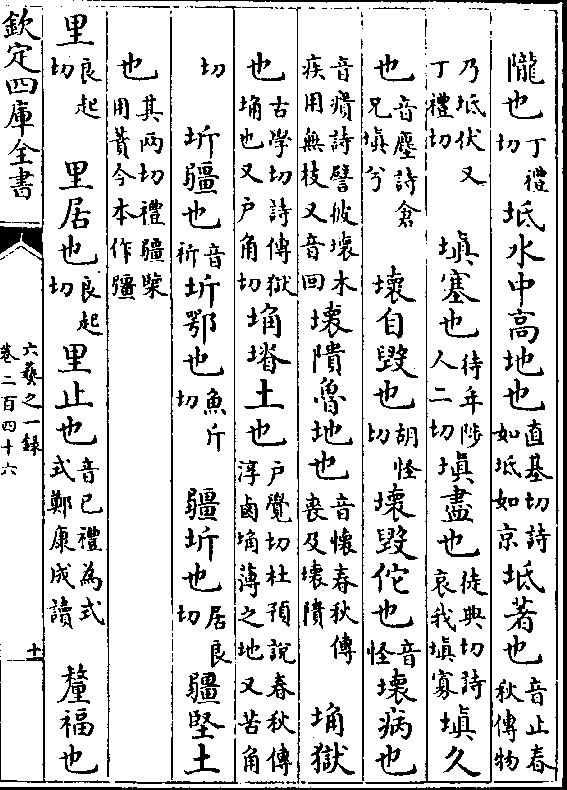 隴也丁禮切坻水中高地也直基切詩如坻如京坻著也音止春秋傳物
乃坻伏又丁禮切 塡塞也待年陟人二切塡盡也徒典切詩哀我塡寡塡久
也音塵詩倉兄塡兮 壞自毀也胡怪切壞毀佗也音怪壞病也
音瘣詩譬彼壞木疾用無枝又音回壞隤魯地也音懷春秋傳喪及壞隤 埆獄
也古學切詩傳獄埆也又戶角切埆塉土也戶覺切杜預說春秋傳淳鹵埆薄之地又苦角
切 圻疆也音祈圻鄂也魚斤切 疆圻也居良切疆堅土
也其兩切禮疆㯺用蕡今本作疆
里良起切 里居也良起切里止也音已禮為式式鄭康成讀 釐福也
欽定四庫全書
六藝之一錄
卷二百四十六
十